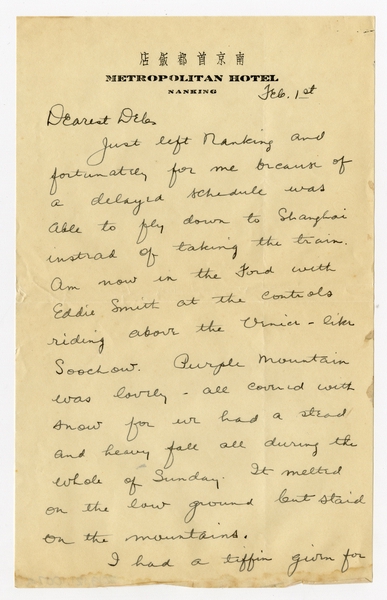 店飯都首京南
METROPOLITAN HOTEL
NANKING
Feb. 1st
Dearest Debs
Just left Nanking and
fortunately for me because of
a delayed schedule was
able to fly down to Shanghai
instead of taking the train.
Am now in the Ford with
Eddie Smith at the controls
riding above the Venice-like
Soochow. Purple Mountain
was lovely - all covered with
snow for we had a stead
and heavy fall all during the
whole of Sunday. It melted
on the low ground but staid
on the mountains.
I had a tiffin given for